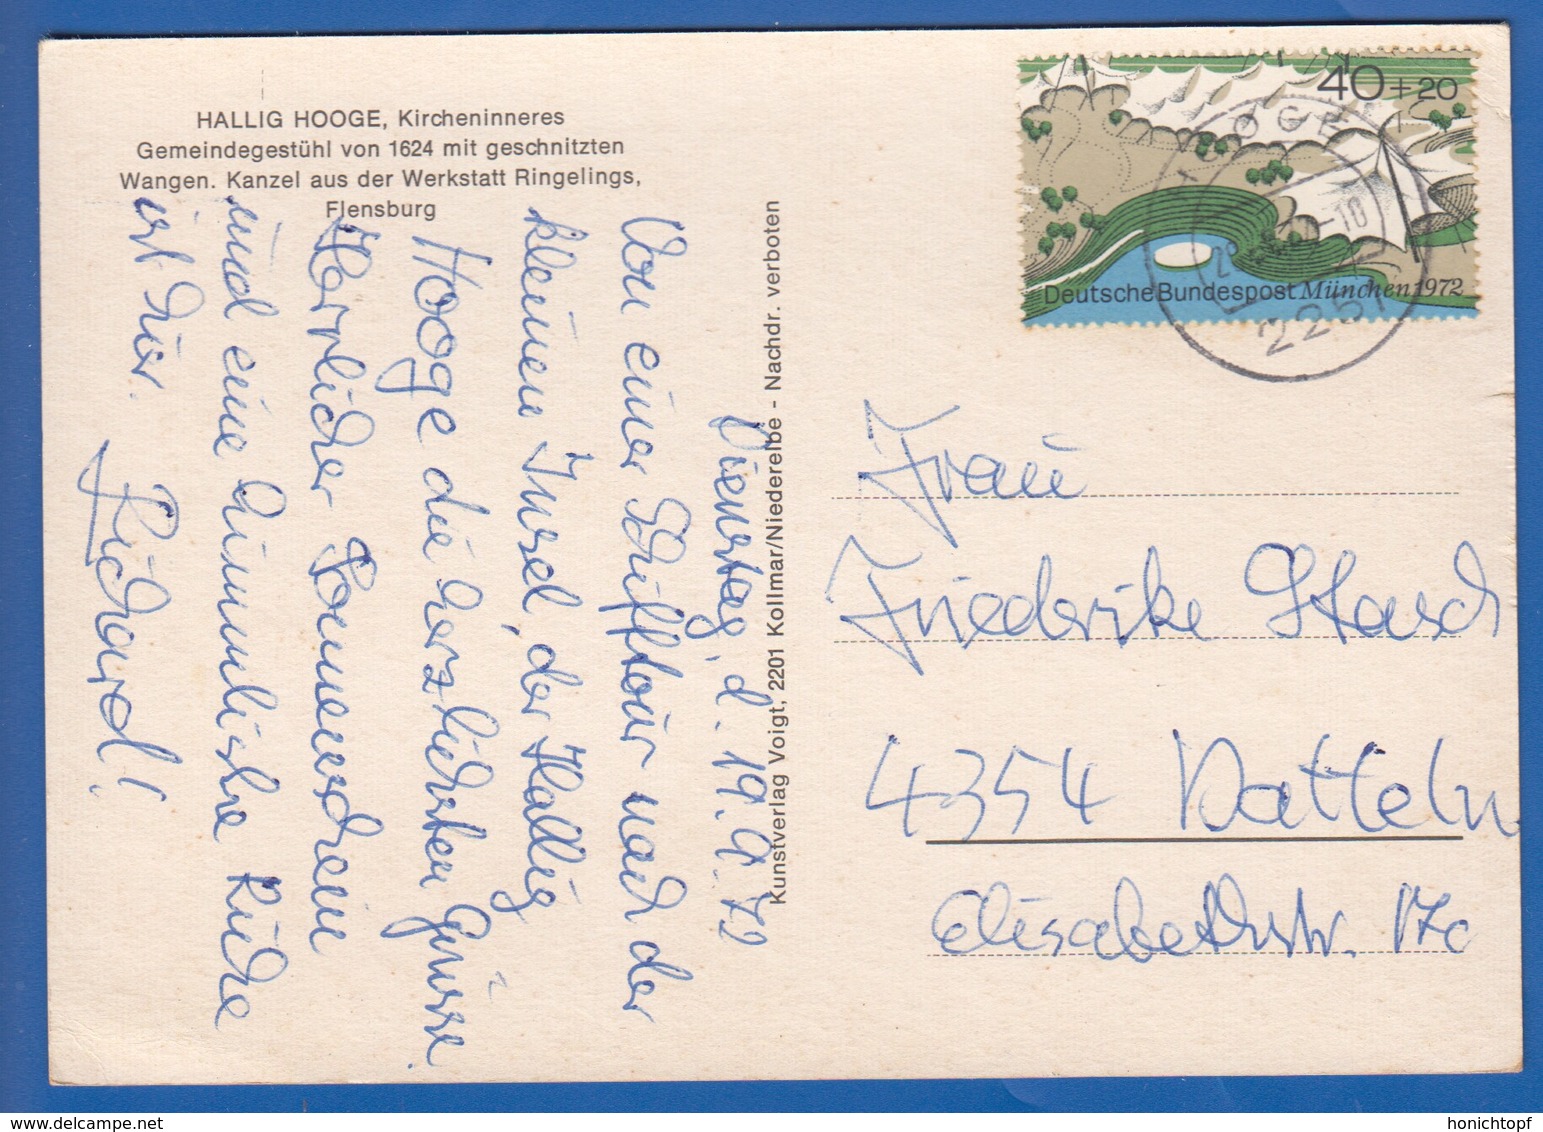 HALLIG HOOGE, Kircheninneres
Gemeindegestühl von 1624 mit geschnitzten
Wangen. Kanzel aus der Werkstatt Ringelings,
Flensburg
Dienstag, d. 19.9.72
Von einer Schifftour nach der
kleinen Insel, der Hallig
Hooge die herzlichsten Grüsse.
Herrlicher Sonnenschein
und eine himmlische Ruhe
ist hier.
Richard!
Kunstverlag Voigt, 2201 Kollmar/Niederelbe - Nachdr. verboten
40+20
Deutsche Bundespost München 1972
OGE
-10
2251
Frau
Friederike Stasch
4354 Datteln
Elisabethstr. 17c
honichtopf